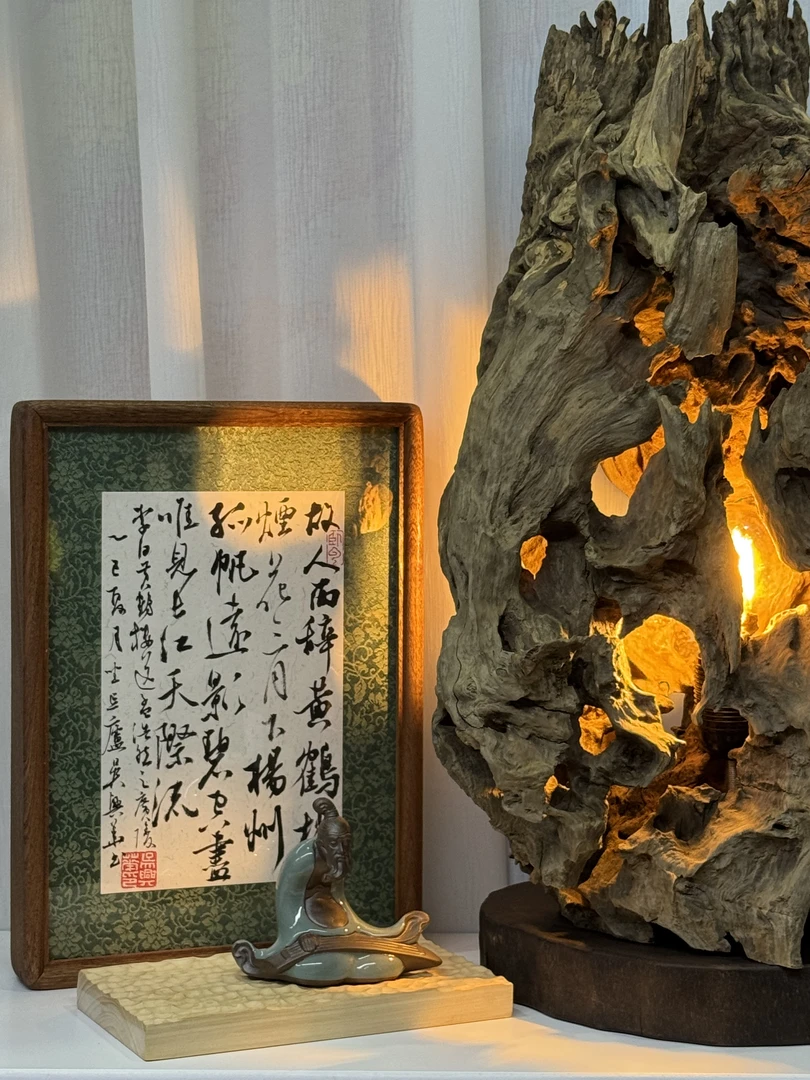 故人西辞黄鶴
煙花三月下楊州
孤帆遠影碧空盡
唯見長江天際流
李白黄鶴樓送孟浩然之廣陵
乙巳夏月 廬 吳興
吳興